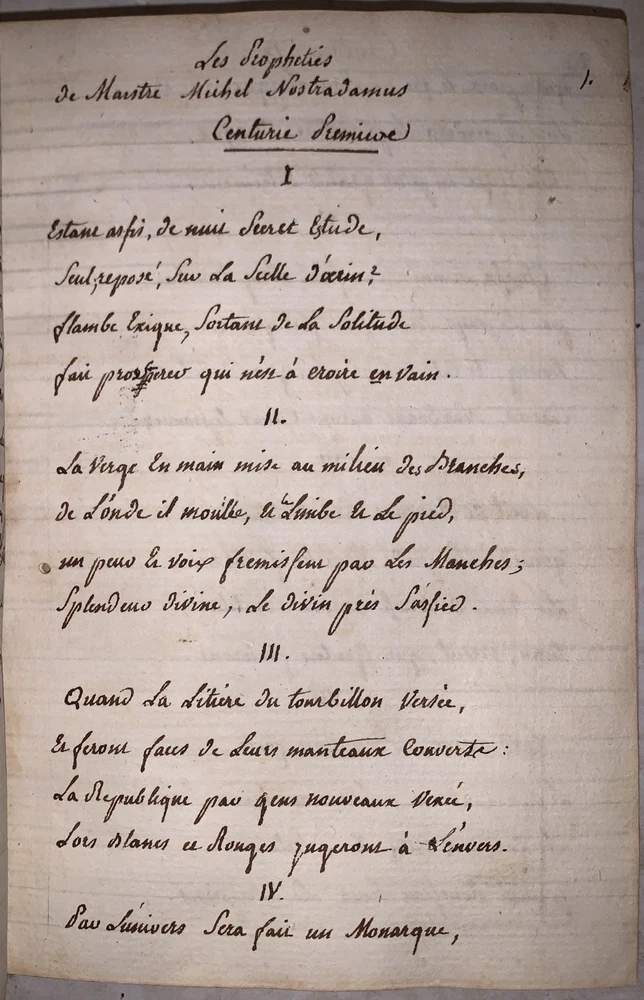 Les Propheties
de Maistre Michel Nostradamus
1.
Centurie Premiere
I
Estant assis, de nuit Secret Estude,
Seul, reposé, Sur La Selle d'ærin,
flambe Exigue, Sortant de La Solitude
fait prosperer qui n'ést à croire en vain.
II.
La Verge En main mise au milieu des Branches,
de L'onde il mouille, Et le Limbe Et Le pied,
un peur Et voix fremissent par Les Manches;
Splendeur divine, Le divin prés S'assied.
III.
Quand La Litiére du tourbillon Versée,
Et feront faces de Leurs manteaux Converts:
La Republique par gens nouveaux Vexée,
Lors Blancs et Rouges jugeront à L'envers.
IV.
Par L'univers Sera fait un Monarque,